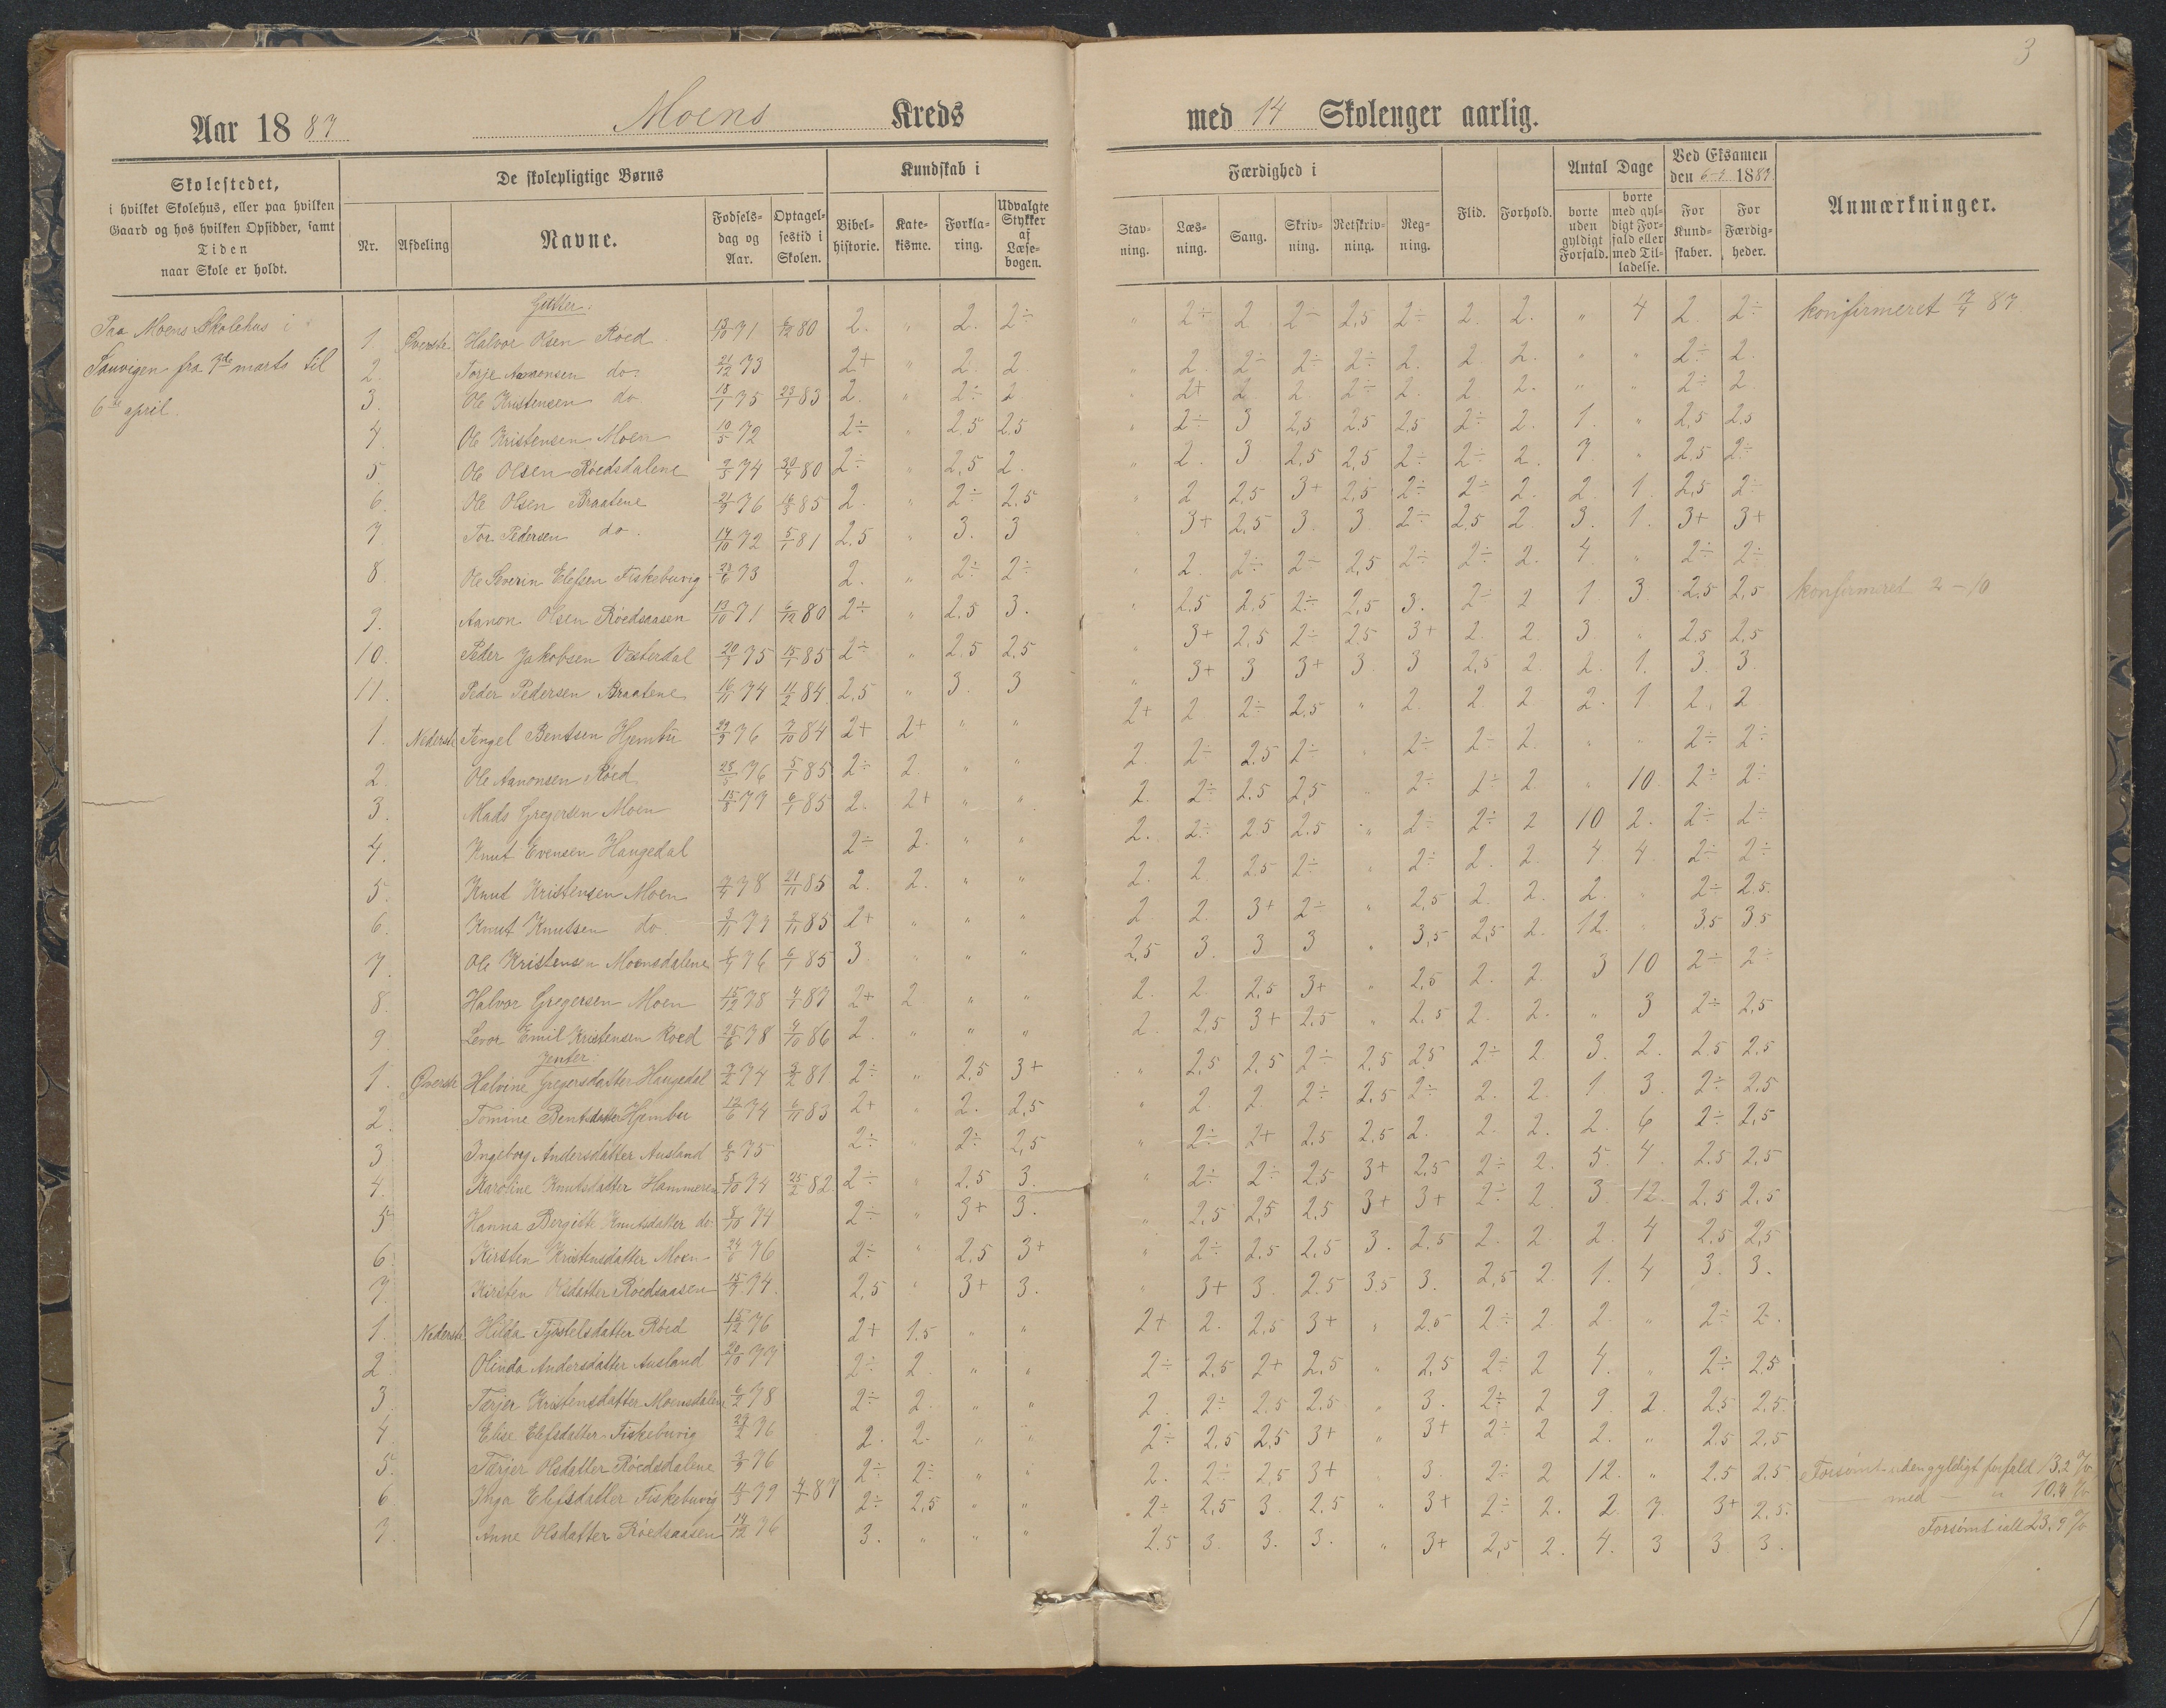 3
Aar 1887 Moens Kreds med 14 Skolenger aarlig.
Skolestedet,
i hvilket Skolehus, eller paa hvilken
Gaard og hos hvilken Opsidder, samt
Tiden
naar Skole er holdt.
De skolepligtige Børns
Nr. Afdeling Navne. Fødsels-dag og Aar. Optagel-sestid i Skolen.
Kundskab i
Bibel-historie. Kate-kisme. Forkla-ring. Udvalgte Stykker af Læse-bogen.
Færdighed i
Stav-ning. Læs-ning. Sang. Skriv-ning. Retskriv-ning. Reg-ning.
Flid. Forhold.
Antal Dage
borte uden gyldigt Forfald. borte med gyl-digt For-fald eller med Til-ladelse.
Ved Eksamen
den 6-4 1887
For Kund-skaber. For Færdig-heder.
Anmærkninger.
Paa Moens Skolehus i
Sauvigen fra 7de marts til
6te april.
Gutter:
1. Øverste Halvor Olsen Roed 13/10 71 6/12 80 2. " 2. 2÷ " 2÷ 2 2÷ 2,5 2÷ 2. 2. " 4 2 2÷ konfirmeret 17/4 87.
2. Torje Aanonsen do. 21/12 73 2+ " 2 2 " 2. 2÷ 2÷ 2÷ 2. 2. 2. " " 2÷ 2
3. Ole Kristensen do 18/1 75 23/1 83 2. " 2÷ 2 " 2+ 2 2 2÷ 2. 2 2. " " 2÷ 2
4. Ole Kristensen Moen 10/5 72 2÷ " 2.5 2.5 " 2÷ 3 2,5 2,5 2,5 2÷ 2. 1. " 2,5 2,5
5. Ole Olsen Röedsdalene 74 80 2÷ " 2,5 2. " 2. 3 2,5 2,5 2÷ 2÷ 2. 7. " 2.5 2÷
6. Ole Olsen Braatene 76 85 2. " 2÷ 2,5 " 2 2,5 3+ 2,5 2÷ 2÷ 2. 2. 1. 2,5 2÷
7 Tor Pedersen do. 14/10 72 5/1 81 2.5 " 3. 3 3+ 2,5 3. 3 2÷ 2,5 2 3. 1. 3+ 3+
8. Ole Severin Elefsen Fiskebuvig 73 2. " 2÷ 2÷ " 2. 2÷ 2÷ 2,5 2÷ 2÷ 2. 4. " 2÷ 2÷
9. Aanon Olsen Röedsaasen 13/10 71 6/12 80 2÷ " 2,5 3. " 2,5 2,5 2÷ 2,5 3. 2÷ 2 1 3. 2,5 2,5 konfirmeret 2-10
10. Peder Jakobsen Vesterdal 75 15/1 85 2÷ " 2.5 2,5 " 3+ 2,5 2÷ 2,5 3+ 2. 2. 3. " 2,5 2,5
11. Peder Pedersen Braatene 16/11 74 11/2 84 2,5 " 3. 3 " 3+ 3 3+ 3. 3 2,5 2. 2. 1. 3. 3.
1. Nederste Tengel Bentsen Hjembu 76 7/10 84 2+ 2+ " " 2+ 2 2÷ 2.5 " 2. 2. 2 2. 1 2. 2
2. Ole Aanonsen Röed 76 5/1 85 2÷ 2 " " 2. 2÷ 2.5 2÷ " 2÷ 2÷ 2. " " 2÷ 2÷
3. Mads Gregersen Moen 15/8 77 6/1 85 2. 2+ " " 2. 2÷ 2.5 2,5 " 2÷ 2÷ 2 " 10 2÷ 2÷
4. Knut Evensen Haugedal 2÷ 2. " " 2. 2÷ 2.5 2.5 " 2÷ 2÷ 2 10 2. 2÷ 2÷
5. Knud Kristensen Moen 78 21/11 85 2. 2. " " 2. 2. 2.5 2÷ " 2÷ 2. 2. 4. 4. 2÷ 2÷
6. Knut Knutsen do. 77 85 2+ " " " 2 2. 3+ 2÷ " 2,5 2. 2. 2. " 2÷ 2.5
7. Ole Kristensen Moensdalene 76 6/1 85 3 " " " 2,5 3. 3 3 " 3,5 2,5 2. 12. " 3.5 3.5
8. Halvor Gregersen Moen 15/12 78 87 2+ 2 " " 2. 2 2,5 3+ " 2,5 2. 2. 3 10 2÷ 2÷
9. Levor Emil Kristensen Roed 25/6 78 86 2. " " " 2. 2,5 3+ 2,5 " 2.5 2. 2. " 3 2÷ 2,5
Jenter:
1. Øverste Halvine Gregersdatter Haugedal 74 81 2÷ " 2,5 3+ " 2,5 2.5 2÷ 2.5 2.5 2÷ 2 3. 2. 2.5 2,5
2. Tomine Bentsdatter Hjembu 74 6/11 83 2+ " 2. 2,5 " 2 2 2÷ 2.5 2÷ 2. 2. 1 3. 2÷ 2.5
3 Ingeborg Andersdatter Ausland 75 2÷ " 2÷ 2,5 " 2÷ 2+ 2.5 2,5 2. 2. 2. 2. 6 2÷ 2,5
4. Karoline Knutsdatter Hammeren 74 25/2 82 2÷ " 2,5 3. " 2÷ 2÷ 2,5 3+ 2.5 2÷ 2. 5. 4. 2.5 2,5
5 Hanna Bergitte Knutsdatter do 74 2÷ " 3+ 3. " 2,5 2,5 2,5 3+ 3+ 2÷ 2. 3. 12. 2.5 2,5
6. Kirsten Kristensdatter Moen 24/6 76 2÷ " 2,5 3+ " 2÷ 2,5 2,5 3. 2.5 2. 2. 2. 4 2.5 2,5
7. Kirsten Olsdatter Roedsaasen 74. 2,5 " 3+ 3. " 3+ 3. 2.5 3.5 3. 2,5 2. 1. 4 3. 3.
1. Nederste Hilda Tjøstelsdatter Röed 76 2+ 1.5 " " 2+ 2. 2,5 3+ " 2.5 2÷ 2. 2. " 2÷ 2.
2. Olinda Andersdatter Ausland 20/10 77 2÷ 2. " " 2÷ 2,5 2+ 2,5 " 2,5 2÷ 2 4. " 2÷ 2.5
3. Tarjer Kristensdatter Moensdalene 6/2 78 2÷ 2. " " 2. 2÷ 2.5 2.5 " 3. 2÷ 2 9 2. 2.5 2.5
4. Elise Elefsdatter Fiskebuvig 76 2. 2. " " 2÷ 2.5 2.5 3+ " 3+ 2÷ 2 2. " 2.5 2,5
5. Tarjer Olsdatter Röedsdalene 76 2÷ 2÷ " " 2. 2÷ 2,5 3+ " 3. 2÷ 2 12. " 2.5 2.5 Forsömt uden gyldigt forfald 13.2 %
6. Inga Elefsdatter Fiskebuvig 79 87 2÷ 2,5 " " 2÷ 2,5 3. 2.5 " 3+ 2÷ 2. 2. 7. 3+ 2,5. — med — " 10.4 %
7. Anne Olsdatter Röedsaasen 14/12 76 3. " " " 2.5 3. 3. 3. " 3+ 2,5 2. 4. 3 3 3. Forsömt ialt 23.9 %